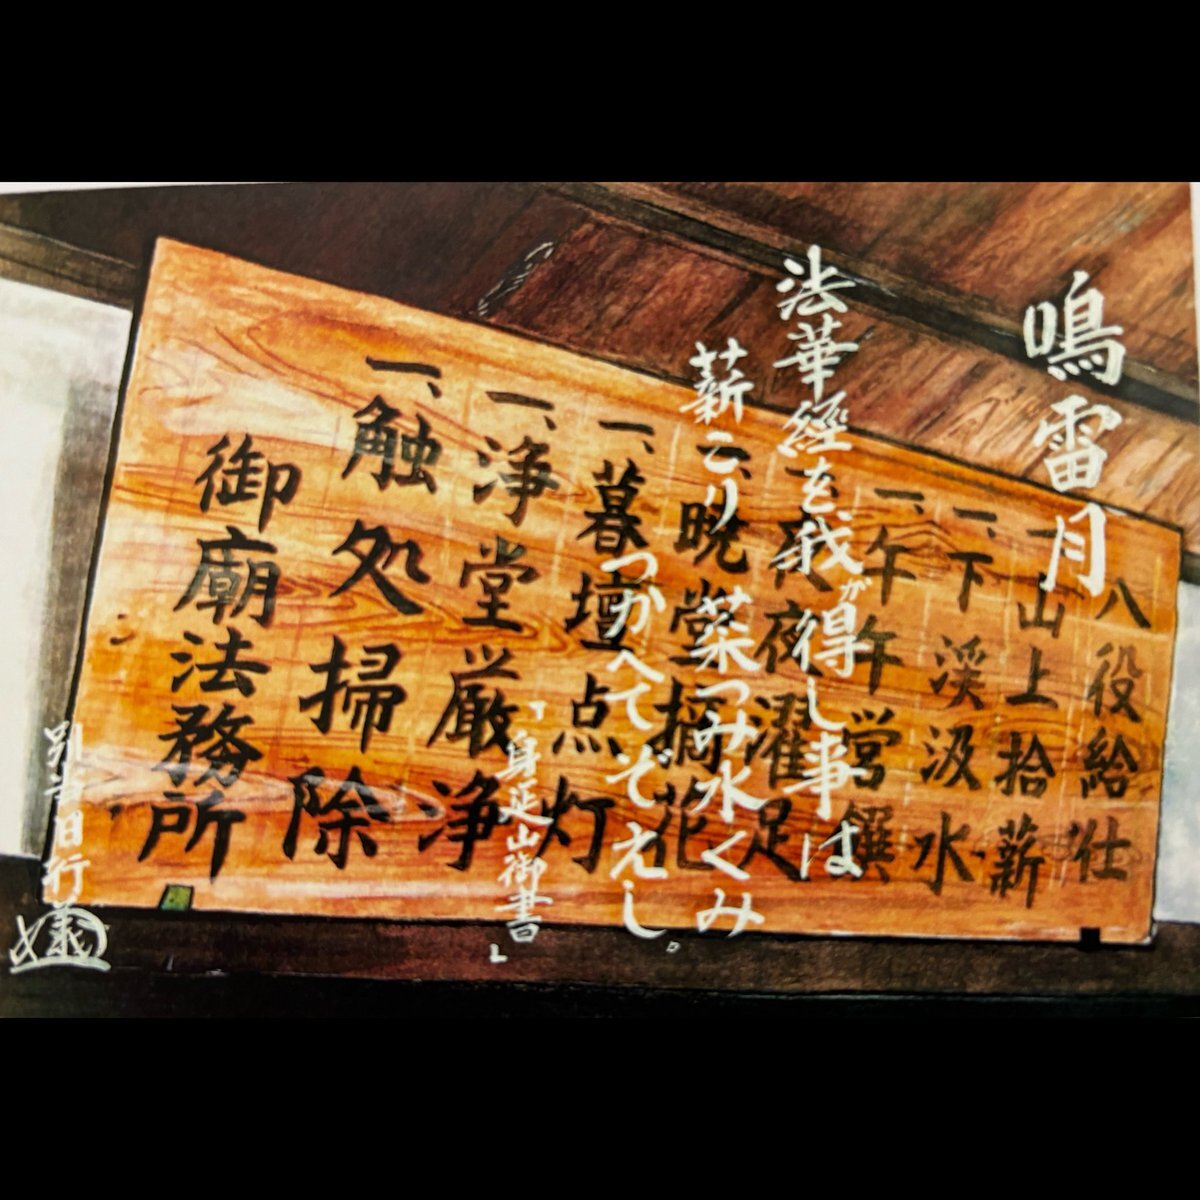 鳴雷月
法華經を我が得し事は
薪こり菜つみ水くみ
つかへてぞえし。
「身延山御書」
別当日行
八役給仕
一山上拾薪
一、下渓汲水
一、午午営饌
一、夜夜濯足
一、暁堂摘花
一、暮壇点灯
一、浄堂厳浄
一、触処掃除
御廟法務所